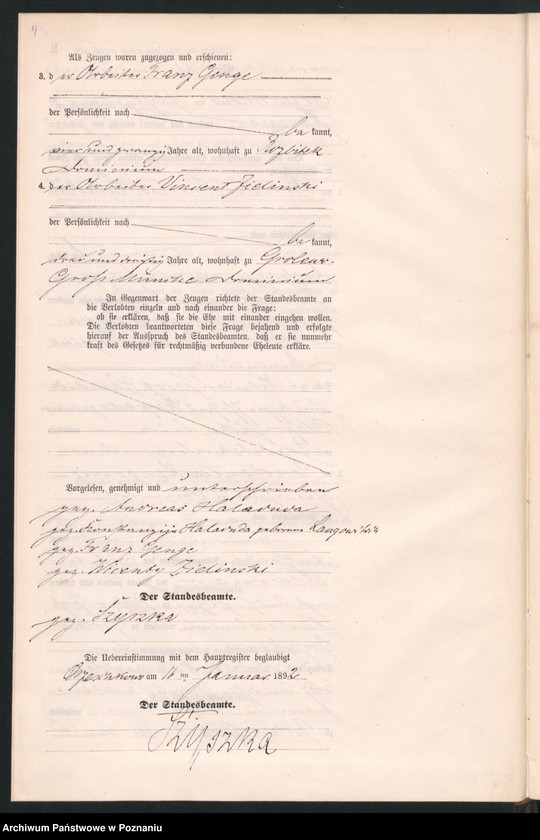 4
Als Zeugen waren zugezogen und erschienen:
3. der Arbeiter Franz Genge
der Persönlichkeit nach
be kannt,
vier und zwanzig Jahre alt, wohnhaft zu Rozbitek
Dominium
4. der Arbeiter Vincent Zielinski
der Persönlichkeit nach
be kannt,
drei und dreißig Jahre alt, wohnhaft zu
Groß Münche Dominium
In Gegenwart der Zeugen richtete der Standesbeamte an
die Verlobten einzeln und nach einander die Frage:
ob sie erklären, daß sie die Ehe mit einander eingehen wollen.
Die Verlobten beantworteten diese Frage bejahend und erfolgte
hierauf der Ausspruch des Standesbeamten, daß er sie nunmehr
kraft des Gesetzes für rechtmäßig verbundene Eheleute erkläre.
Vorgelesen, genehmigt und unterschrieben
gez. Andreas Haladuda
gez. Konstanzija Haladuda geborene
gez. Franz Genge
gez. Wicenty Zielinski
Der Standesbeamte.
gez. Szyszka
Die Uebereinstimmung mit dem Hauptregister beglaubigt
am 11 ten Januar 1892
Der Standesbeamte.
Szyszka
Archiwum Państwowe w Poznaniu